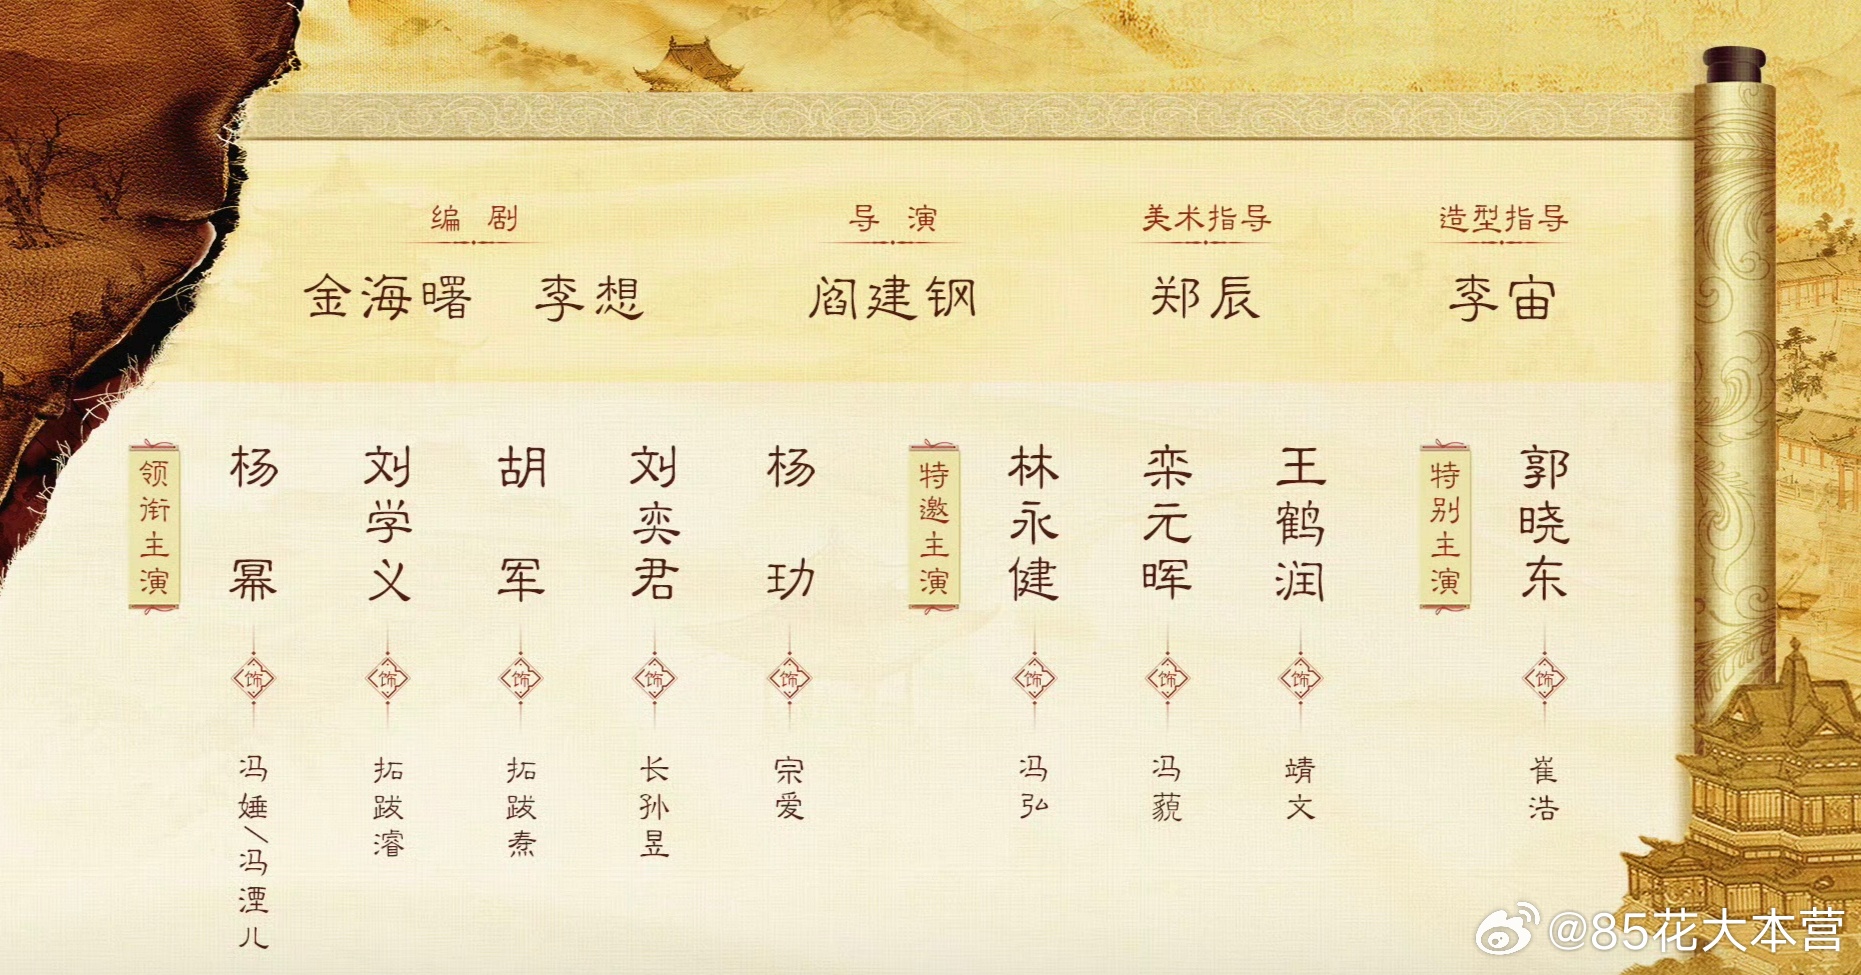 编剧
金海曙 李想
导演
阎建钢
美术指导
郑辰
造型指导
李宙
领衔主演
杨幂
饰
冯娷/冯湮儿
刘学义
饰
拓跋濬
胡军
饰
拓跋焘
刘奕君
饰
长孙昱
杨玏
饰
宗爱
特邀主演
林永健
饰
冯弘
栾元晖
饰
冯藐
王鹤润
饰
靖文
特别主演
郭晓东
饰
崔浩
@85花大本营